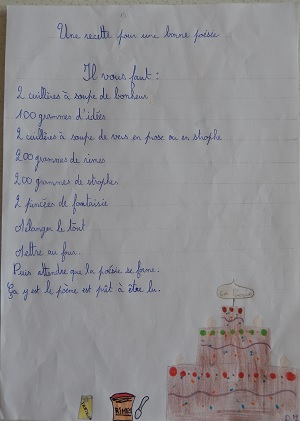 Une recette pour une bonne poésie
Il vous faut :
2 cuillères à soupe de bonheur
100 grammes d'idées
2 cuillères à soupe de vers en prose ou en strophe
200 grammes de rimes
200 grammes de strophes
2 pincées de fantaisie
Mélanger le tout
Mettre au four.
Puis attendre que la poésie se forme.
Ça y est le poème est prêt à être lu.
RIMES